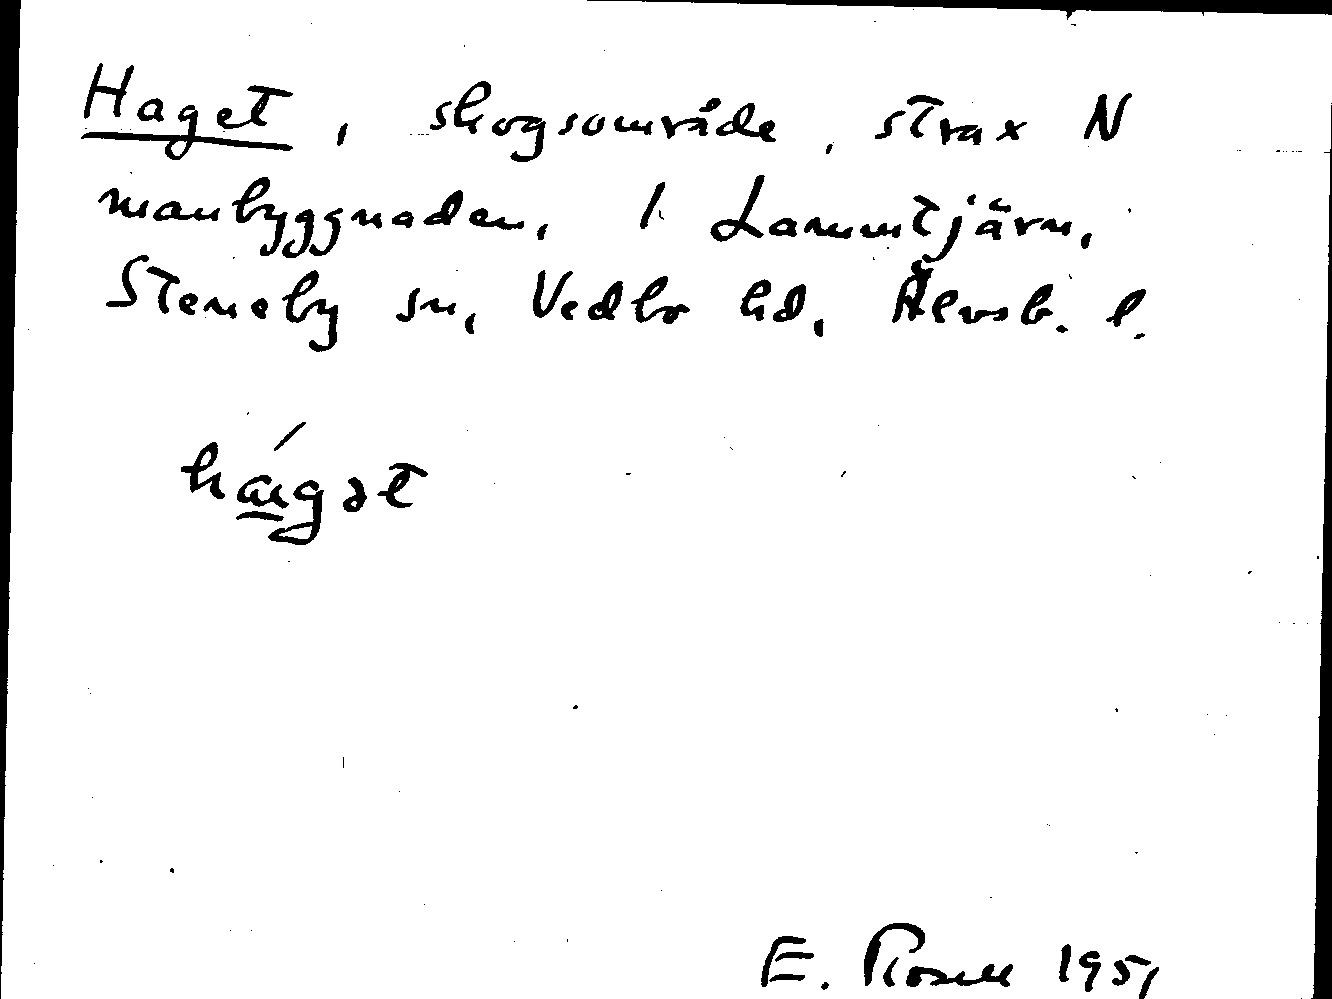 Haget, skogsområde, strax N
manbyggnaden, 1 Lammtjärn,
Steneby sn, Vedbo hd, Älvsb. l.
há̱gət
E. Rosell 1951